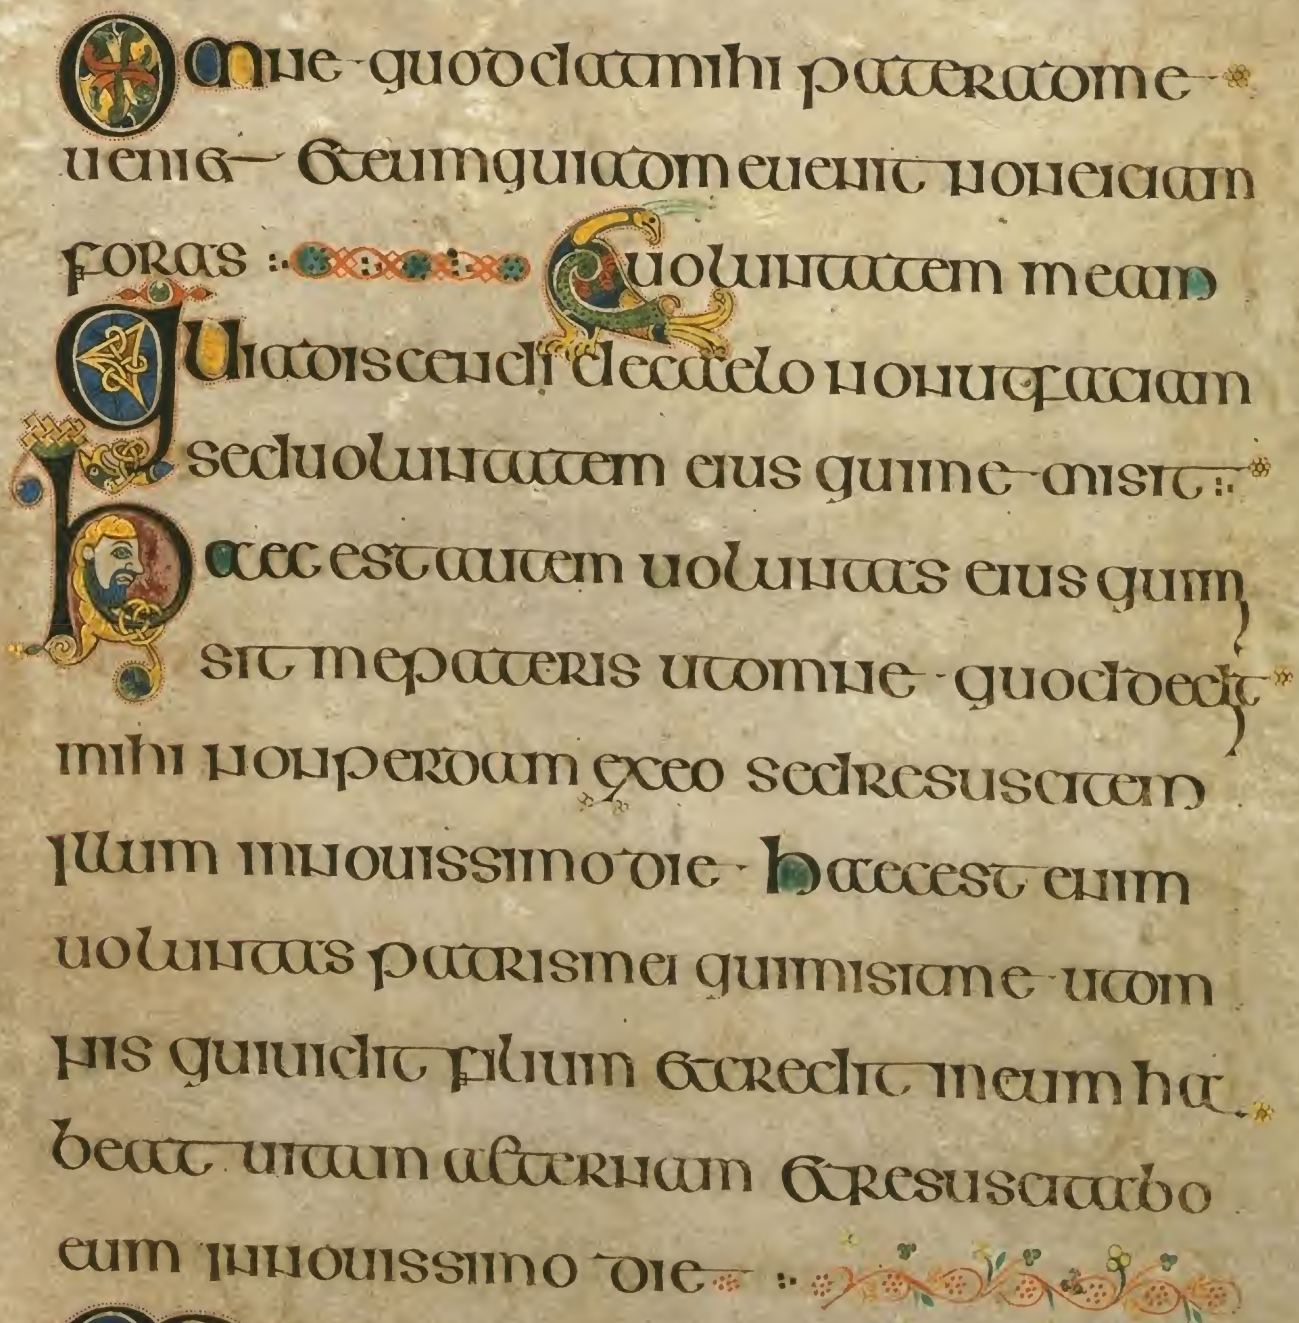 Omne quod dat mihi pater ad me
ueniet et eum qui ad me uenit non eiciam
foras :· uoluntatem meam
Quia discendi de caelo non ut faciam
sed uoluntatem eius qui me misit :·
Haec est autem uoluntas eius qui mi
sit me pateris ut omne quod dedit
mihi non perdam ex eo sed resuscitem
illum in nouissimo die · Haec est enim
uoluntas patris mei qui misit me ut om
nis qui uidit filium et credit in eum ha
beat uitam aeternam et resuscitabo
eum in nouissimo die :·